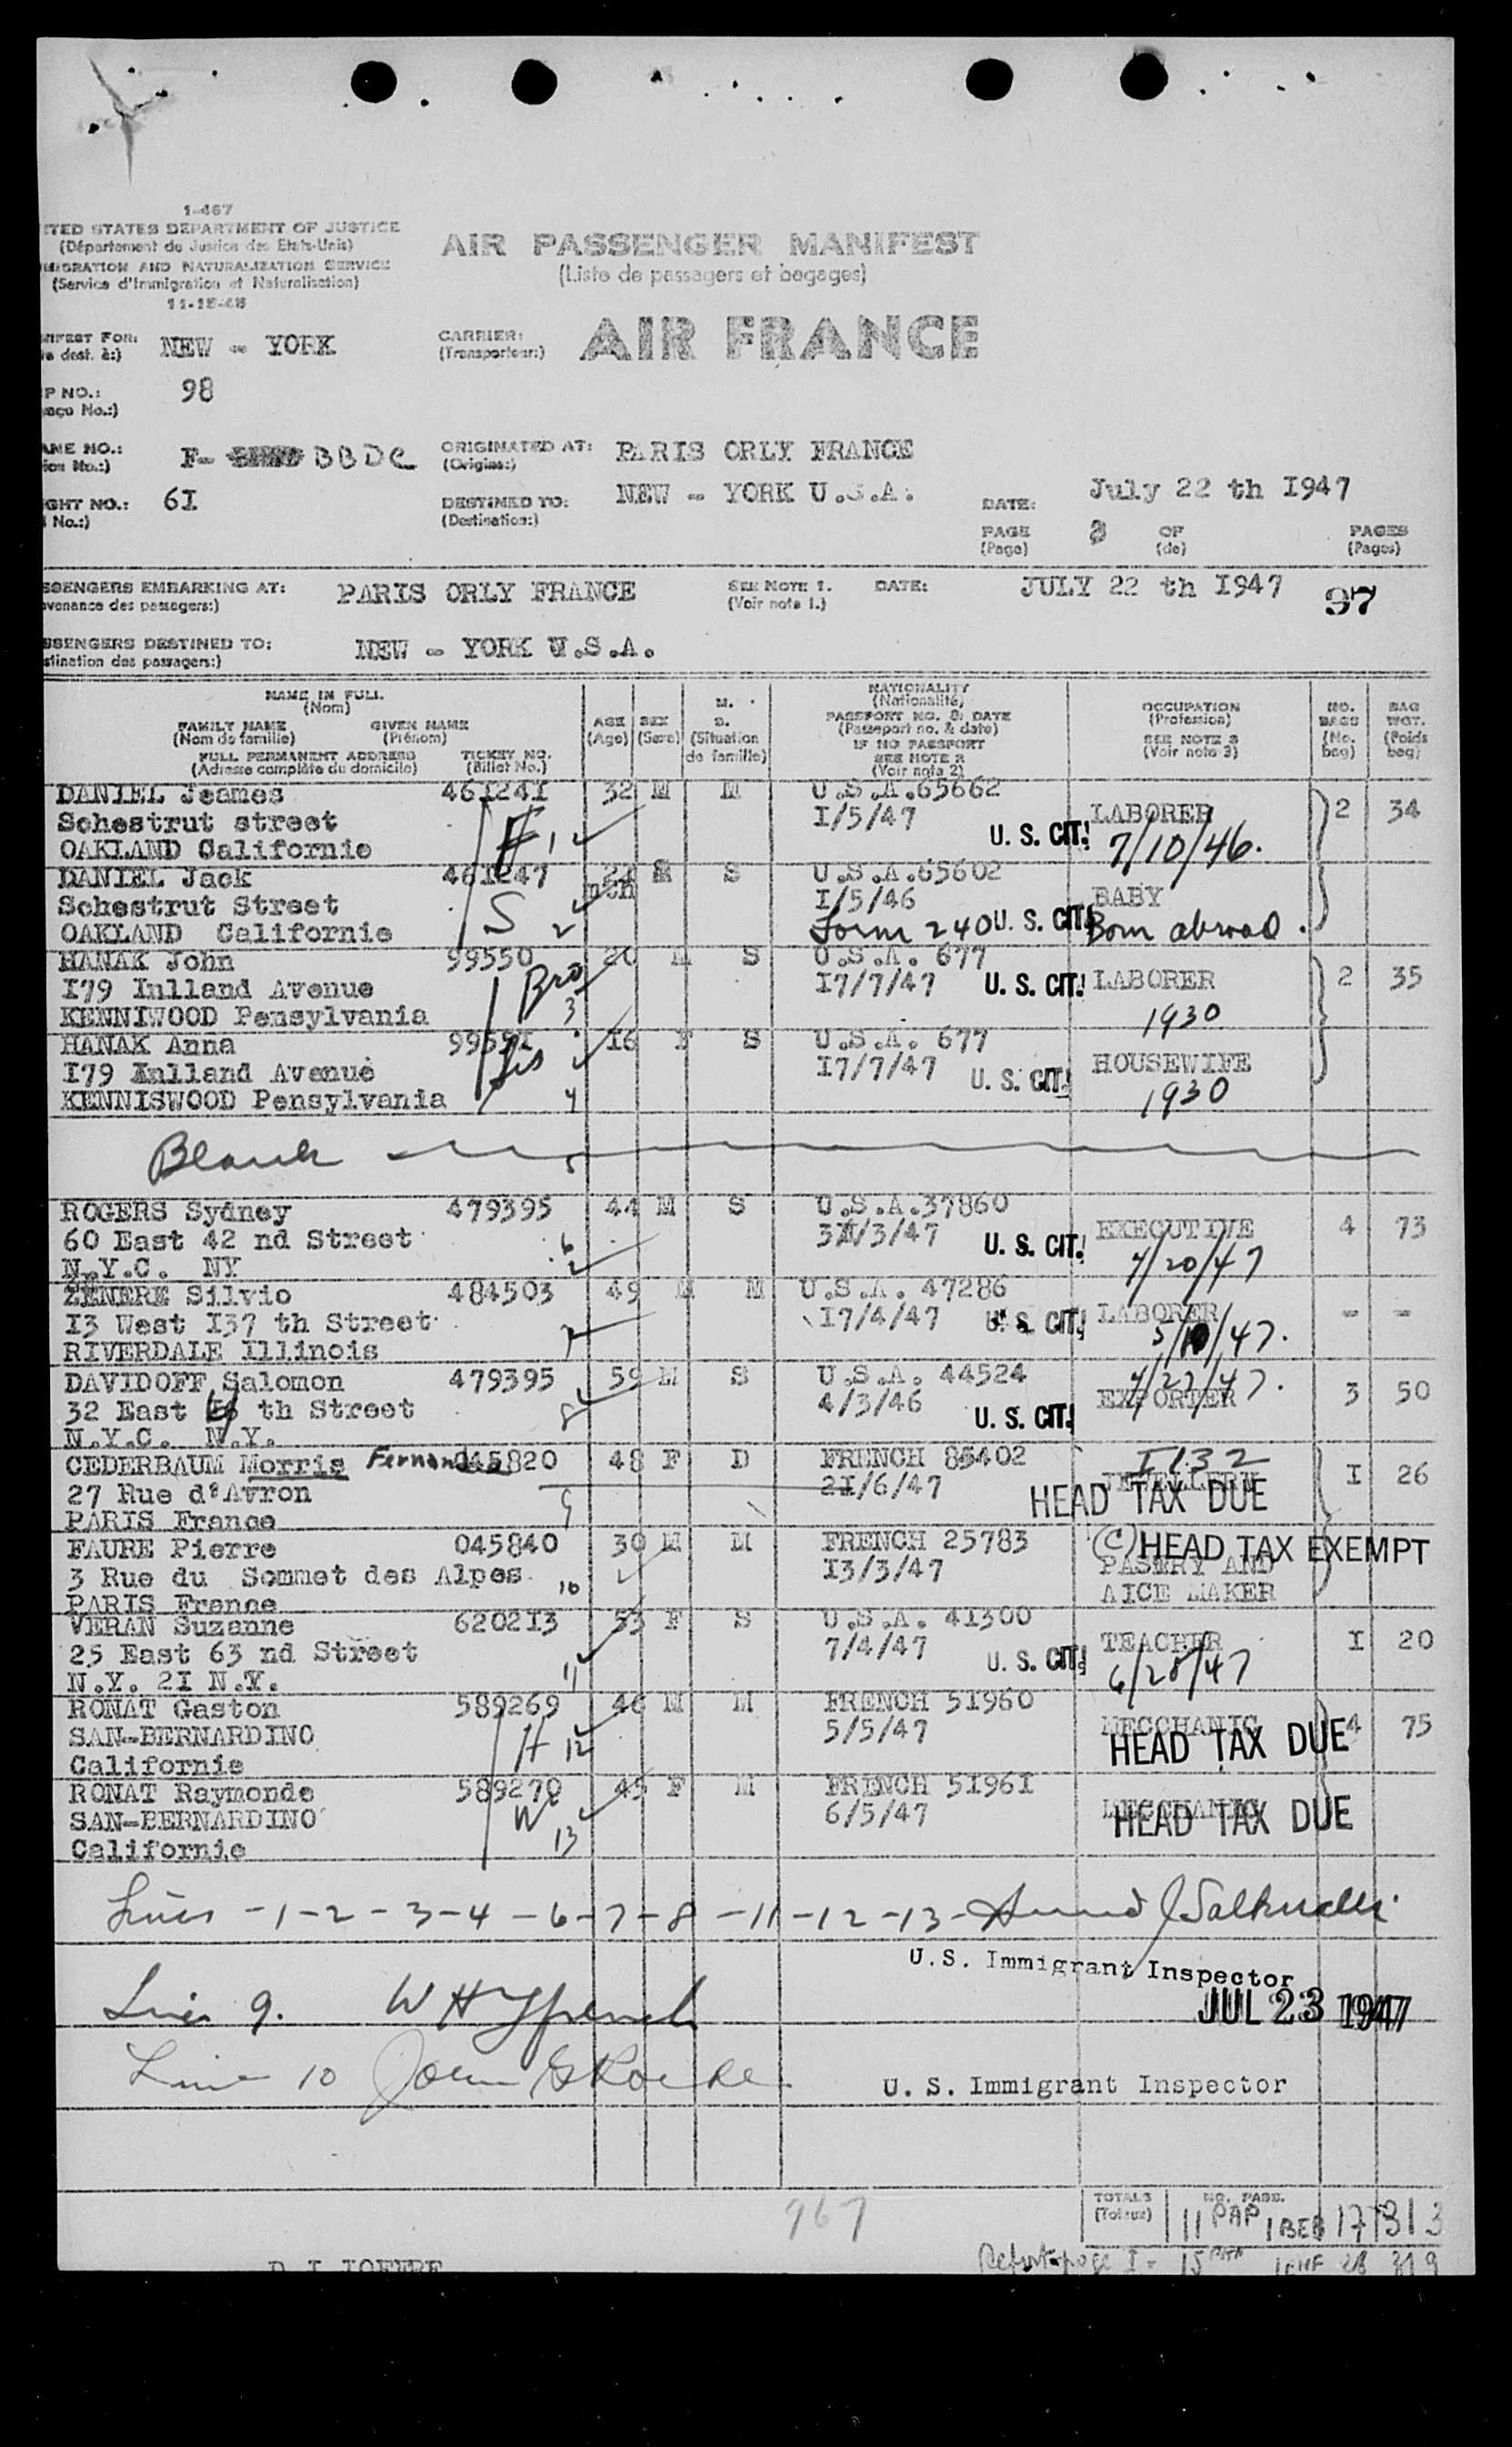 1-467
ITED STATES DEPARTMENT OF JUSTICE
(Département de Justice des Etats-Unis)
MIGRATION AND NATURALIZATION SERVICE
(Service d'Immigration et Naturalisation)
AIR PASSENGER MANIFEST
(Liste de passagers et bagages)
NIFEST FOR:
dest. à:)
NEW - YORK
CARRIER:
(Transporteur:)
AIR FRANCE
P NO.:
No.:)
98
ANE NO.:
ion No.:)
F- BBDC
ORIGINATED AT:
(Origine:)
PARIS ORLY FRANCE
GHT NO.:
No.:)
6I
DESTINED TO:
(Destination:)
NEW - YORK U.S.A.
DATE:
July 22 th I947
PAGE
(Page)
OF
(de)
PAGES
(Pages)
SSENGERS EMBARKING AT:
ovenance des passagers:)
PARIS ORLY FRANCE
SEE NOTE 1.
(Voir note 1.)
DATE:
JULY 22 th I947
97
SSENGERS DESTINED TO:
stination des passagers:)
NEW - YORK U.S.A.
NAME IN FULL
(Nom)
FAMILY NAME GIVEN NAME
(Nom de famille) (Prénom)
FULL PERMANENT ADDRESS TICKET NO.
(Adresse complète du domicile) (Billet No.)
AGE
(Age)
SEX
(Sexe)
M.
S.
(Situation
de famille)
NATIONALITY
(Nationalité)
PASSPORT NO. & DATE
(Passeport no. & date)
IF NO PASSPORT
SEE NOTE 2
(Voir nota 2)
OCCUPATION
(Profession)
SEE NOTE 3
(Voir note 3)
NO.
BAGS
(No.
bag)
BAG
WGT.
(Poids
bag)
DANIEL Jeames 461241 32 M M U.S.A.65662 LABORER 2 34
Schestrut street I/5/47 U. S. CIT. 7/10/46.
OAKLAND Californie 1
DANIEL Jack 461247 mth S U.S.A.65602 BABY
Schestrut Street S 2 I/5/46
OAKLAND Californie Form 240 U. S. CIT. Born abroad.
HANAK John 99550 20 M S U.S.A. 677 LABORER 2 35
I79 Inlland Avenue Bro 3 I7/7/47 U. S. CIT.
KENNIWOOD Pensylvania 1930
HANAK Anna 16 F S U.S.A. 677 HOUSEWIFE
I79 Inlland Avenue Sis I7/7/47 U. S. CIT.
KENNISWOOD Pensylvania 4 1930
Blank 5
ROGERS Sydney 479395 44 M S U.S.A.37860 EXECUTIVE 4 73
60 East 42 nd Street 6 U. S. CIT. 4/20/47
N.Y.C. NY
ZENERE Silvio 484503 49 M M U.S.A. 47286 LABORER - -
I3 West I37 th Street 7 I7/4/47 U. S. CIT. 5/10/47.
RIVERDALE Illinois
DAVIDOFF Salomon 479395 59 M S U.S.A. 44524 EXPORTER 3 50
32 East th Street 8 4/3/46 U. S. CIT. 4/27/47.
N.Y.C. N.Y.
CEDERBAUM Morris 045820 48 F D FRENCH I132 I 26
27 Rue d'Avron 9 2I/6/47 HEAD TAX DUE
PARIS France
FAURE Pierre 045840 30 M M FRENCH 25783 (C) HEAD TAX EXEMPT
3 Rue du Sommet des Alpes 10 I3/3/47 PASTRY AND
PARIS France AICE MAKER
VERAN Suzanne 620213 53 F S U.S.A. 41300 TEACHER I 20
25 East 63 nd Street 7/4/47 U. S. CIT. 6/28/47
N.Y. 2I N.Y. 11
RONAT Gaston 589269 46 M M FRENCH 51960 MECCHANIC 4 75
SAN-BERNARDINO H 12 5/5/47 HEAD TAX DUE
Californie
RONAT Raymonde 589270 45 F M FRENCH 5196I MECCHANIC
SAN-BERNARDINO W 13 6/5/47 HEAD TAX DUE
Californie
Lines -1-2-3-4-6-7-8-11-12-13-
U.S. Immigrant Inspector
Line 9.
JUL 23 1947
Line 10
U. S. Immigrant Inspector
967
TOTALS
(Totaux)
NO. PASS.
11 17 313